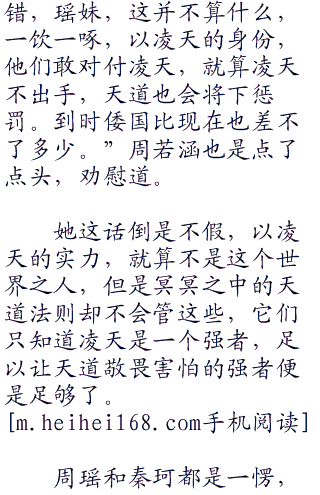 错，瑶妹，这并不算什么，
一饮一啄，以凌天的身份，
他们敢对付凌天，就算凌天
不出手，天道也会将下惩
罚。到时倭国比现在也差不
了多少。”周若涵也是点了
点头，劝慰道。
她这话倒是不假，以凌
天的实力，就算不是这个世
界之人，但是冥冥之中的天
道法则却不会管这些，它们
只知道凌天是一个强者，足
以让天道敬畏害怕的强者便
是足够了。
[m.heihei168.com手机阅读]
周瑶和秦珂都是一愣，